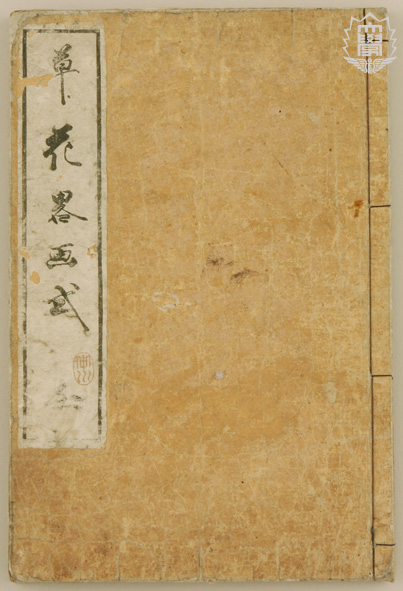 草花畧画式